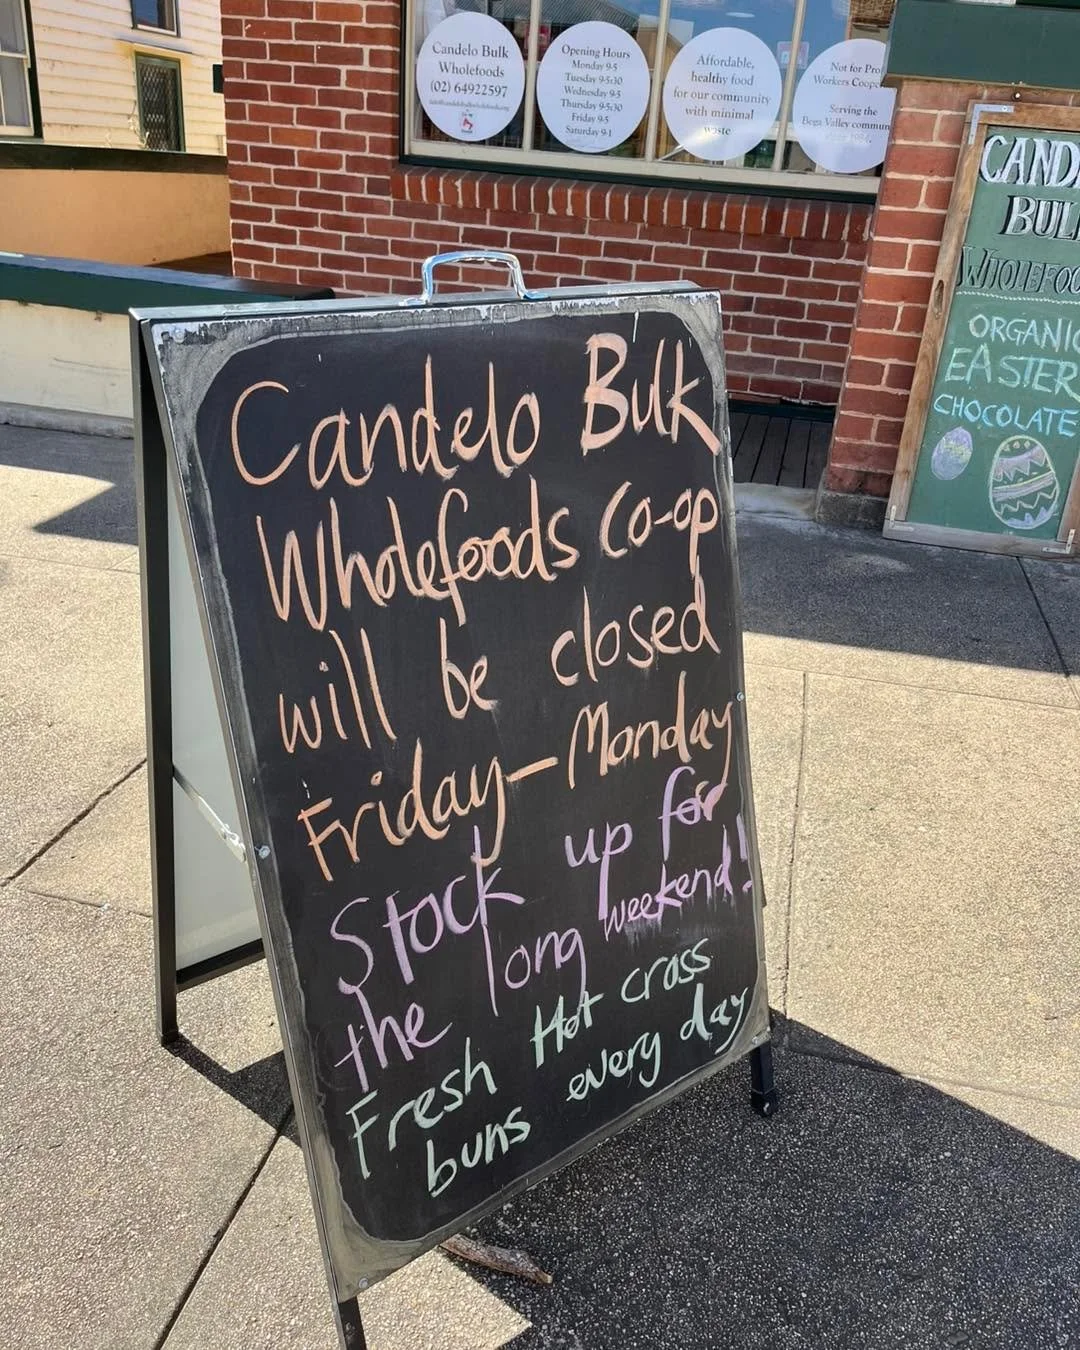 Candelo Bulk
Wholefoods
(02) 64922597
Opening Hours
Monday 9-5
Tuesday 9-5:30
Wednesday 9-5
Thursday 9-5:30
Friday 9-5
Saturday 9-1
Affordable,
healthy food
for our community
with minimal
waste
Not for Pro
Workers Coope
Serving the
Bega Valley commun
CAND
BUL
WHOLEFOO
ORGANIC
EASTER
CHOCOLATE
Candelo Bulk
Wholefoods Co-op
will be closed
Friday-Monday
Stock up for
the long weekend!
Fresh Hot cross
buns every day